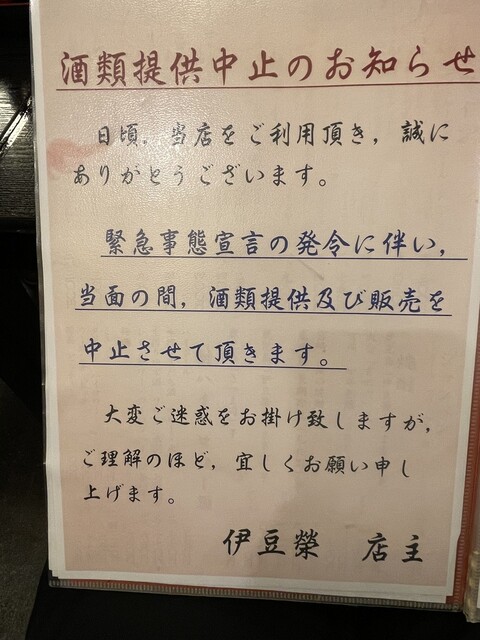 酒類提供中止のお知らせ
日頃，当店をご利用頂き，誠に
ありがとうございます。
緊急事態宣言の発令に伴い，
当面の間，酒類提供及び販売を
中止させて頂きます。
大変ご迷惑をお掛け致しますが，
ご理解のほど，宜しくお願い申し
上げます。
伊豆榮　店主